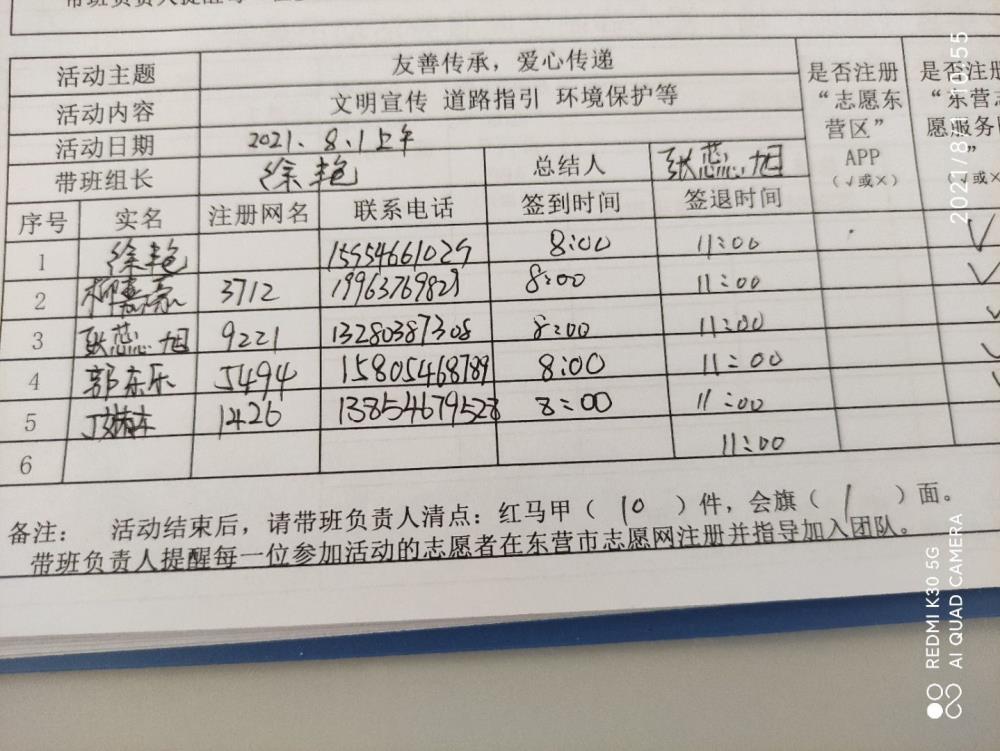 活动主题 友善传承，爱心传递 是否注册“志愿东营区”APP（√或×）
活动内容 文明宣传 道路指引 环境保护等
活动日期 2021.8.1上午
带班组长 徐艳 总结人 耿蕊旭
序号 实名 注册网名 联系电话 签到时间 签退时间
1 徐艳 15954661029 8:00 11:00 √
2 柳嘉豪 3712 19963769829 8:00 11:00 √
3 耿蕊旭 9221 13280387308 8:00 11:00 √
4 郭东乐 5494 15805468789 8:00 11:00 √
5 1426 13854679528 8:00 11:00 √
6 11:00
备注： 活动结束后，请带班负责人清点：红马甲（ 10 ）件，会旗（ 1 ）面。
带班负责人提醒每一位参加活动的志愿者在东营市志愿网注册并指导加入团队。
REDMI K30 5G
AI QUAD CAMERA